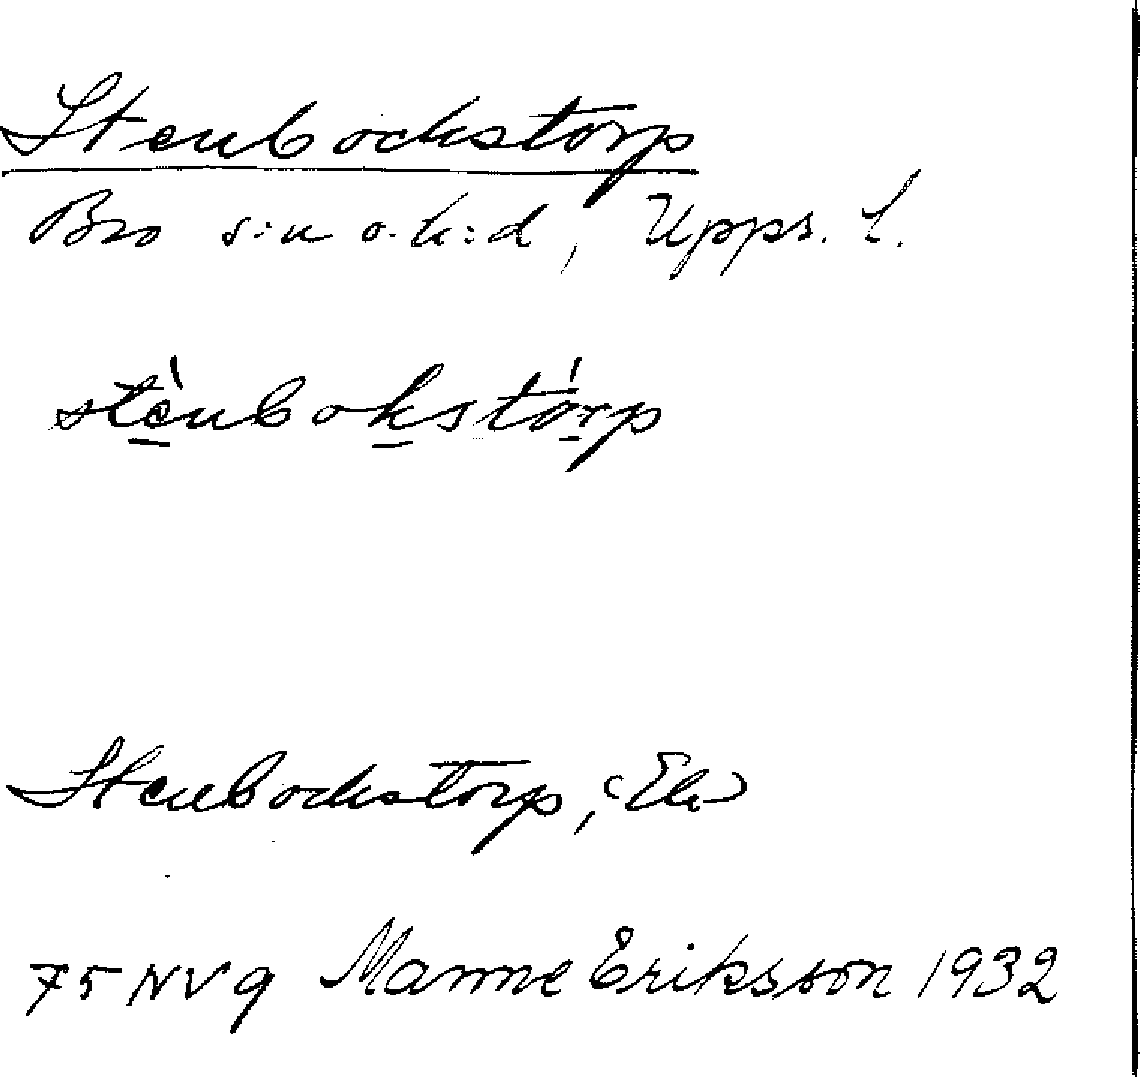 Stenbockstorp
Bro s:n o. h:d, Upps. l.
stènbokstórp
Stenbockstorp, (Ek)
75 NV 9 Manne Eriksson 1932